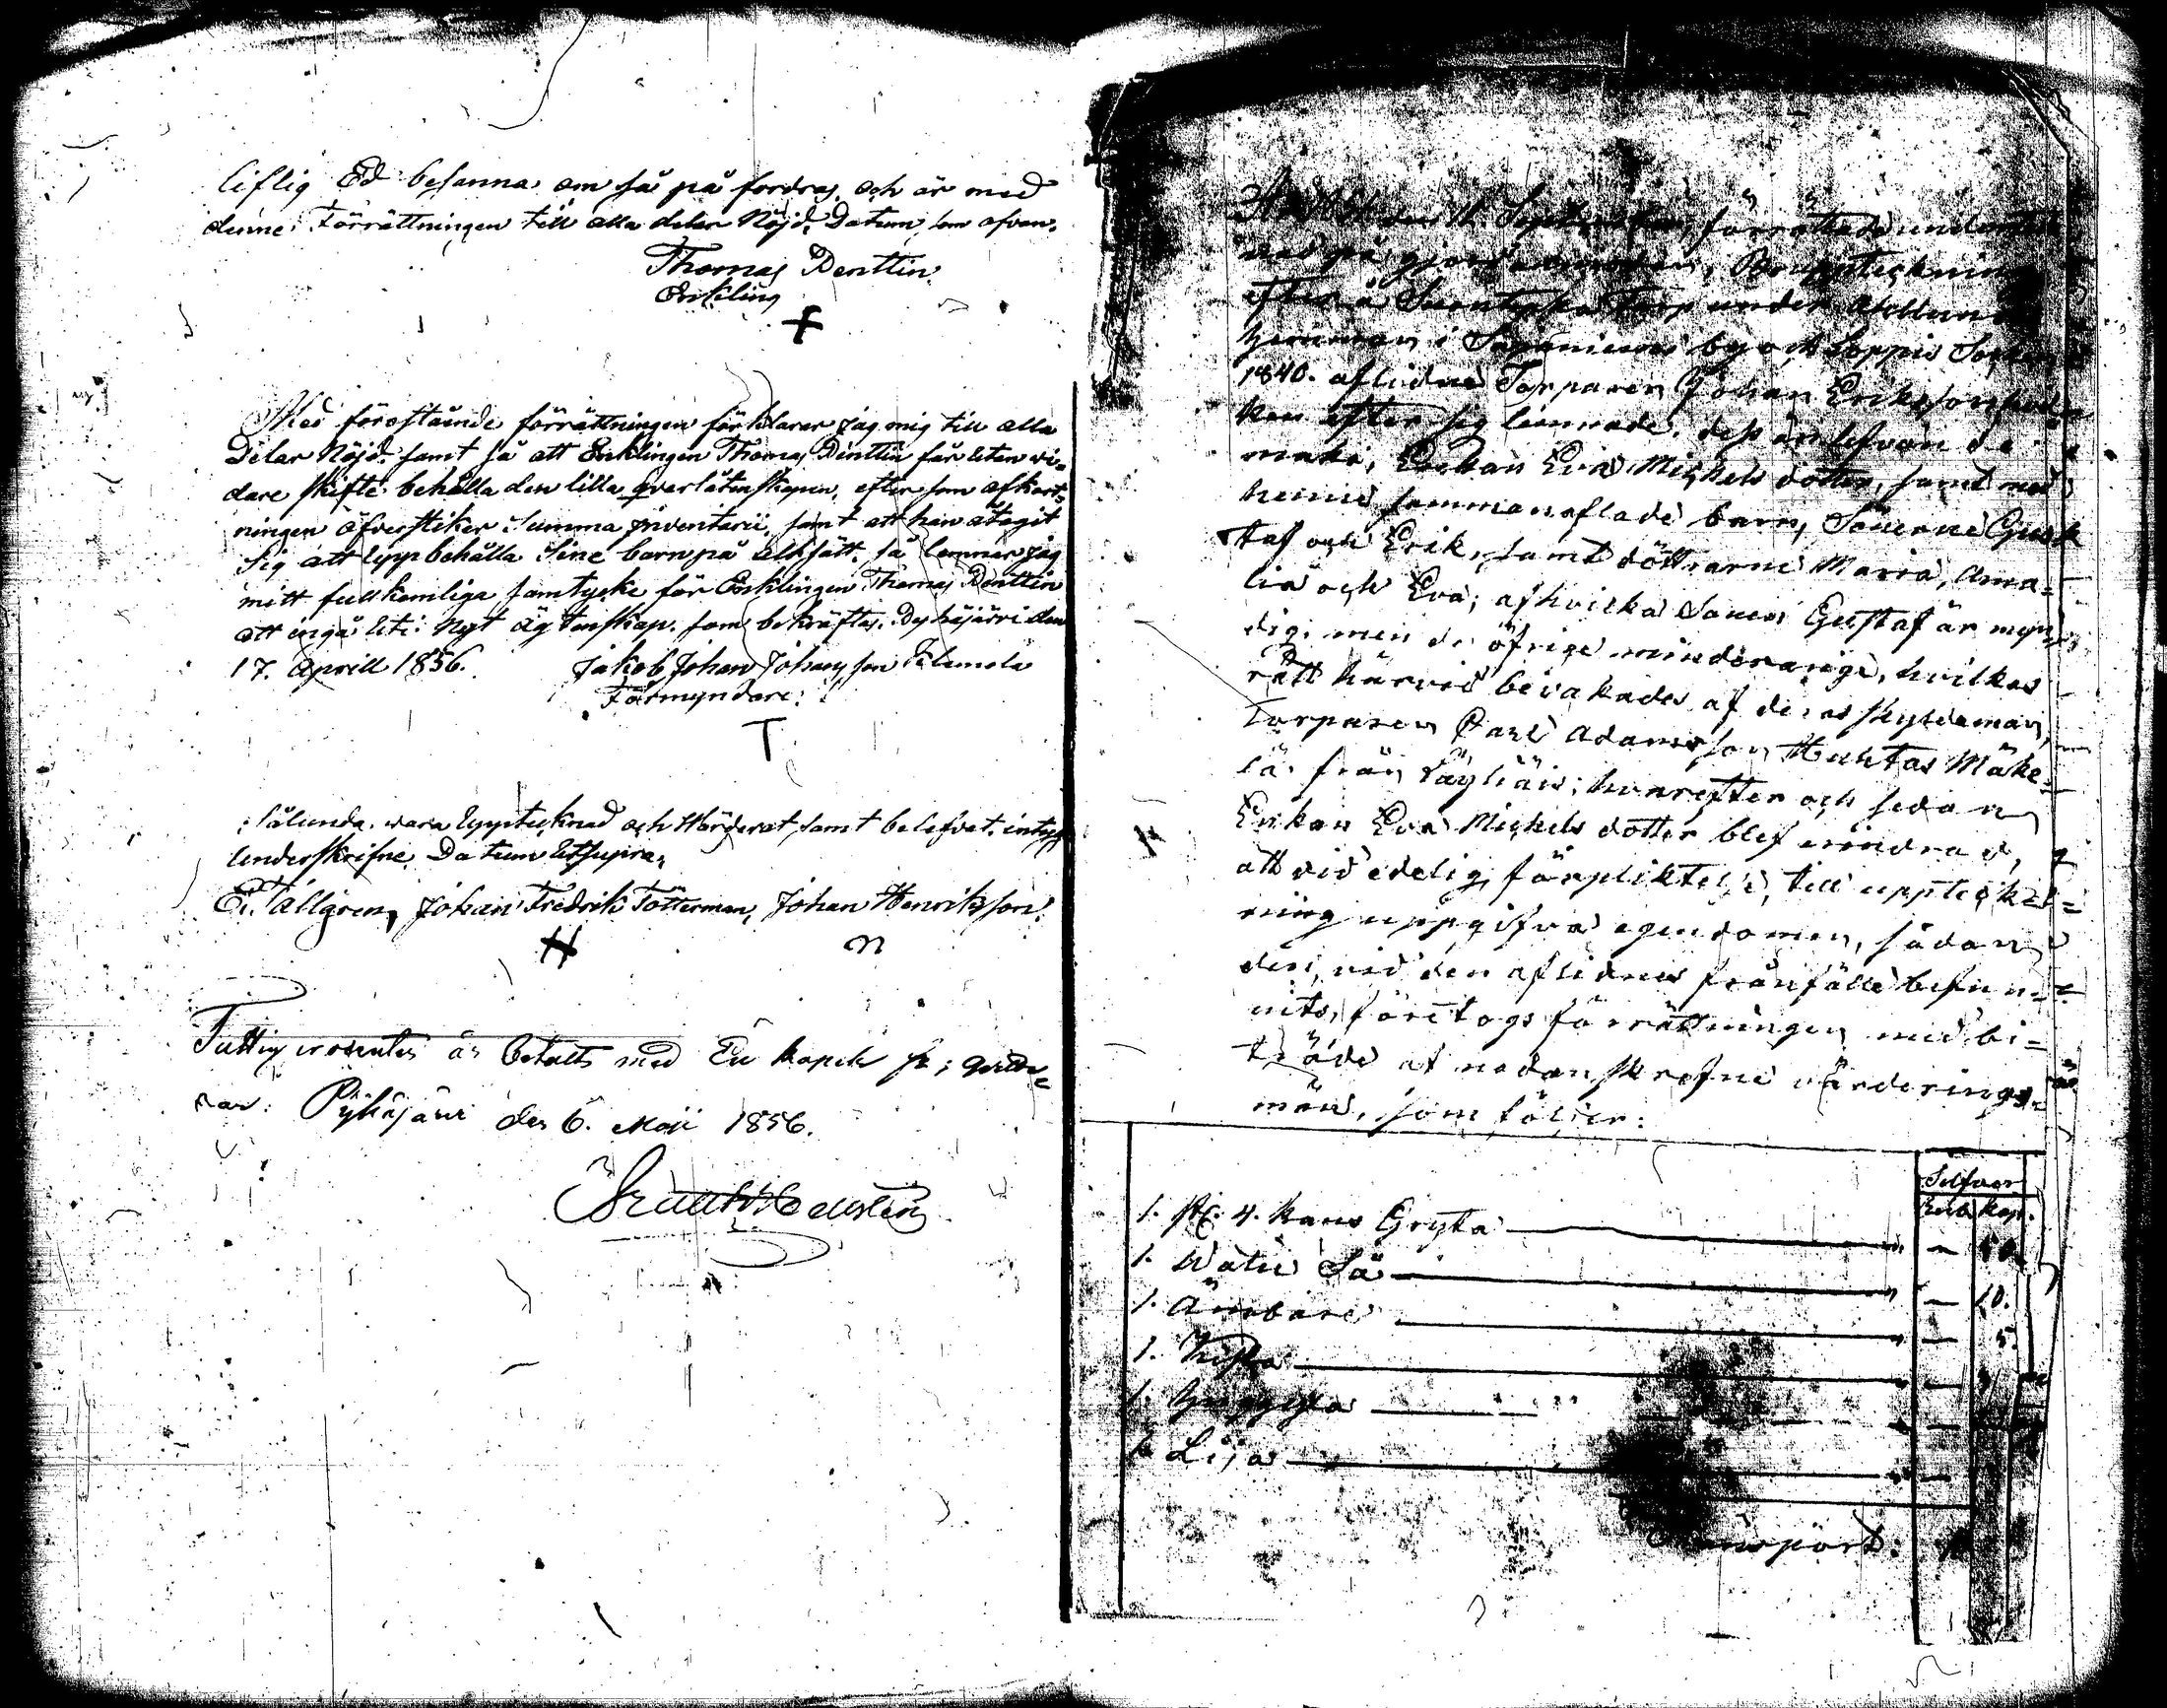 liflig Ed besanna om så på fordras, och är med
denne Förrättningen till alla delar Nöjd. Datum som ofvan.
Thomas Denttin
Enkling
Med förestående förrättningen förklarar jag mig till alla
Delar Nöjd. samt så att Enklingen Thomas Denttin får utan vi-
dare skifte behålla den lilla qvarlåtenskapen, efter som afkort-
ningen öfverstiker Summa inventarii, samt att han åtagit
Sig att uppbehålla Sine barn på allt sätt, så lemnar jag
mitt fullkomliga samtycke för Enklingen Thomas Denttin
att ingå uti Nyt ägtenskap. som bekräftas. Pyhäjärvi den
17. Aprill 1856. Jakob Johan Johansson
Förmyndare:
Sålunda vara Upptecknad och Wärderat, samt belefvat, intyga
Underskrifne Datum Utsupra,
Tallgren, Johan Fredrik Totterman, Johan Henriksson.
N
Fattig procenten är betalts med En kopek Sr; qvitte-
rar. Pyhäjärvi den 6. Maji 1856.
den September, förrättade
på Bouppteckning
efter å Torp under
i by och Loppis Socken
1840. aflidne Torparen Johan Eriksson
efter sig lemnade,
maka, Enkan Eva Mickels dotter, samt med
henne sammanaflade barn, Sönerne Gus-
taf och Erik, samt döttrarne Maria, Ama-
lia och Eva; af hvilka Sonen Gustaf är myn-
dig, men de öfrige minderårige, hvilkas
rätt härvid bevakades af deras skyldeman,
Torparen Carl Adamsson Huhtas Mäke-
lä från Räyhäis; hvarefter och sedan
Enkan Eva Mickels dotter blef erindrad,
att vid edelig förpliktelse, till uppteck-
ning uppgifva egendomen, sådan
den, vid den aflidnes frånfälle befun-
nits, företogs förrättningen med bi-
träde af nedanskrefne värderings-
män, som följer:
Silfver
Rub. kop.
1. st. 4. kans Gryta
1. Watu Så — 10.
1. Ämbare — 5.
1. Kista
1.
1. Lija
Transport: